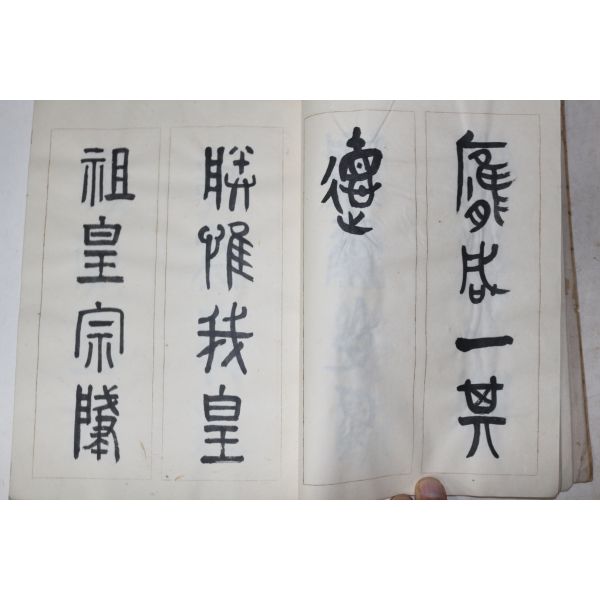 膺咸一其
德
朕惟我皇
祖皇宗肇